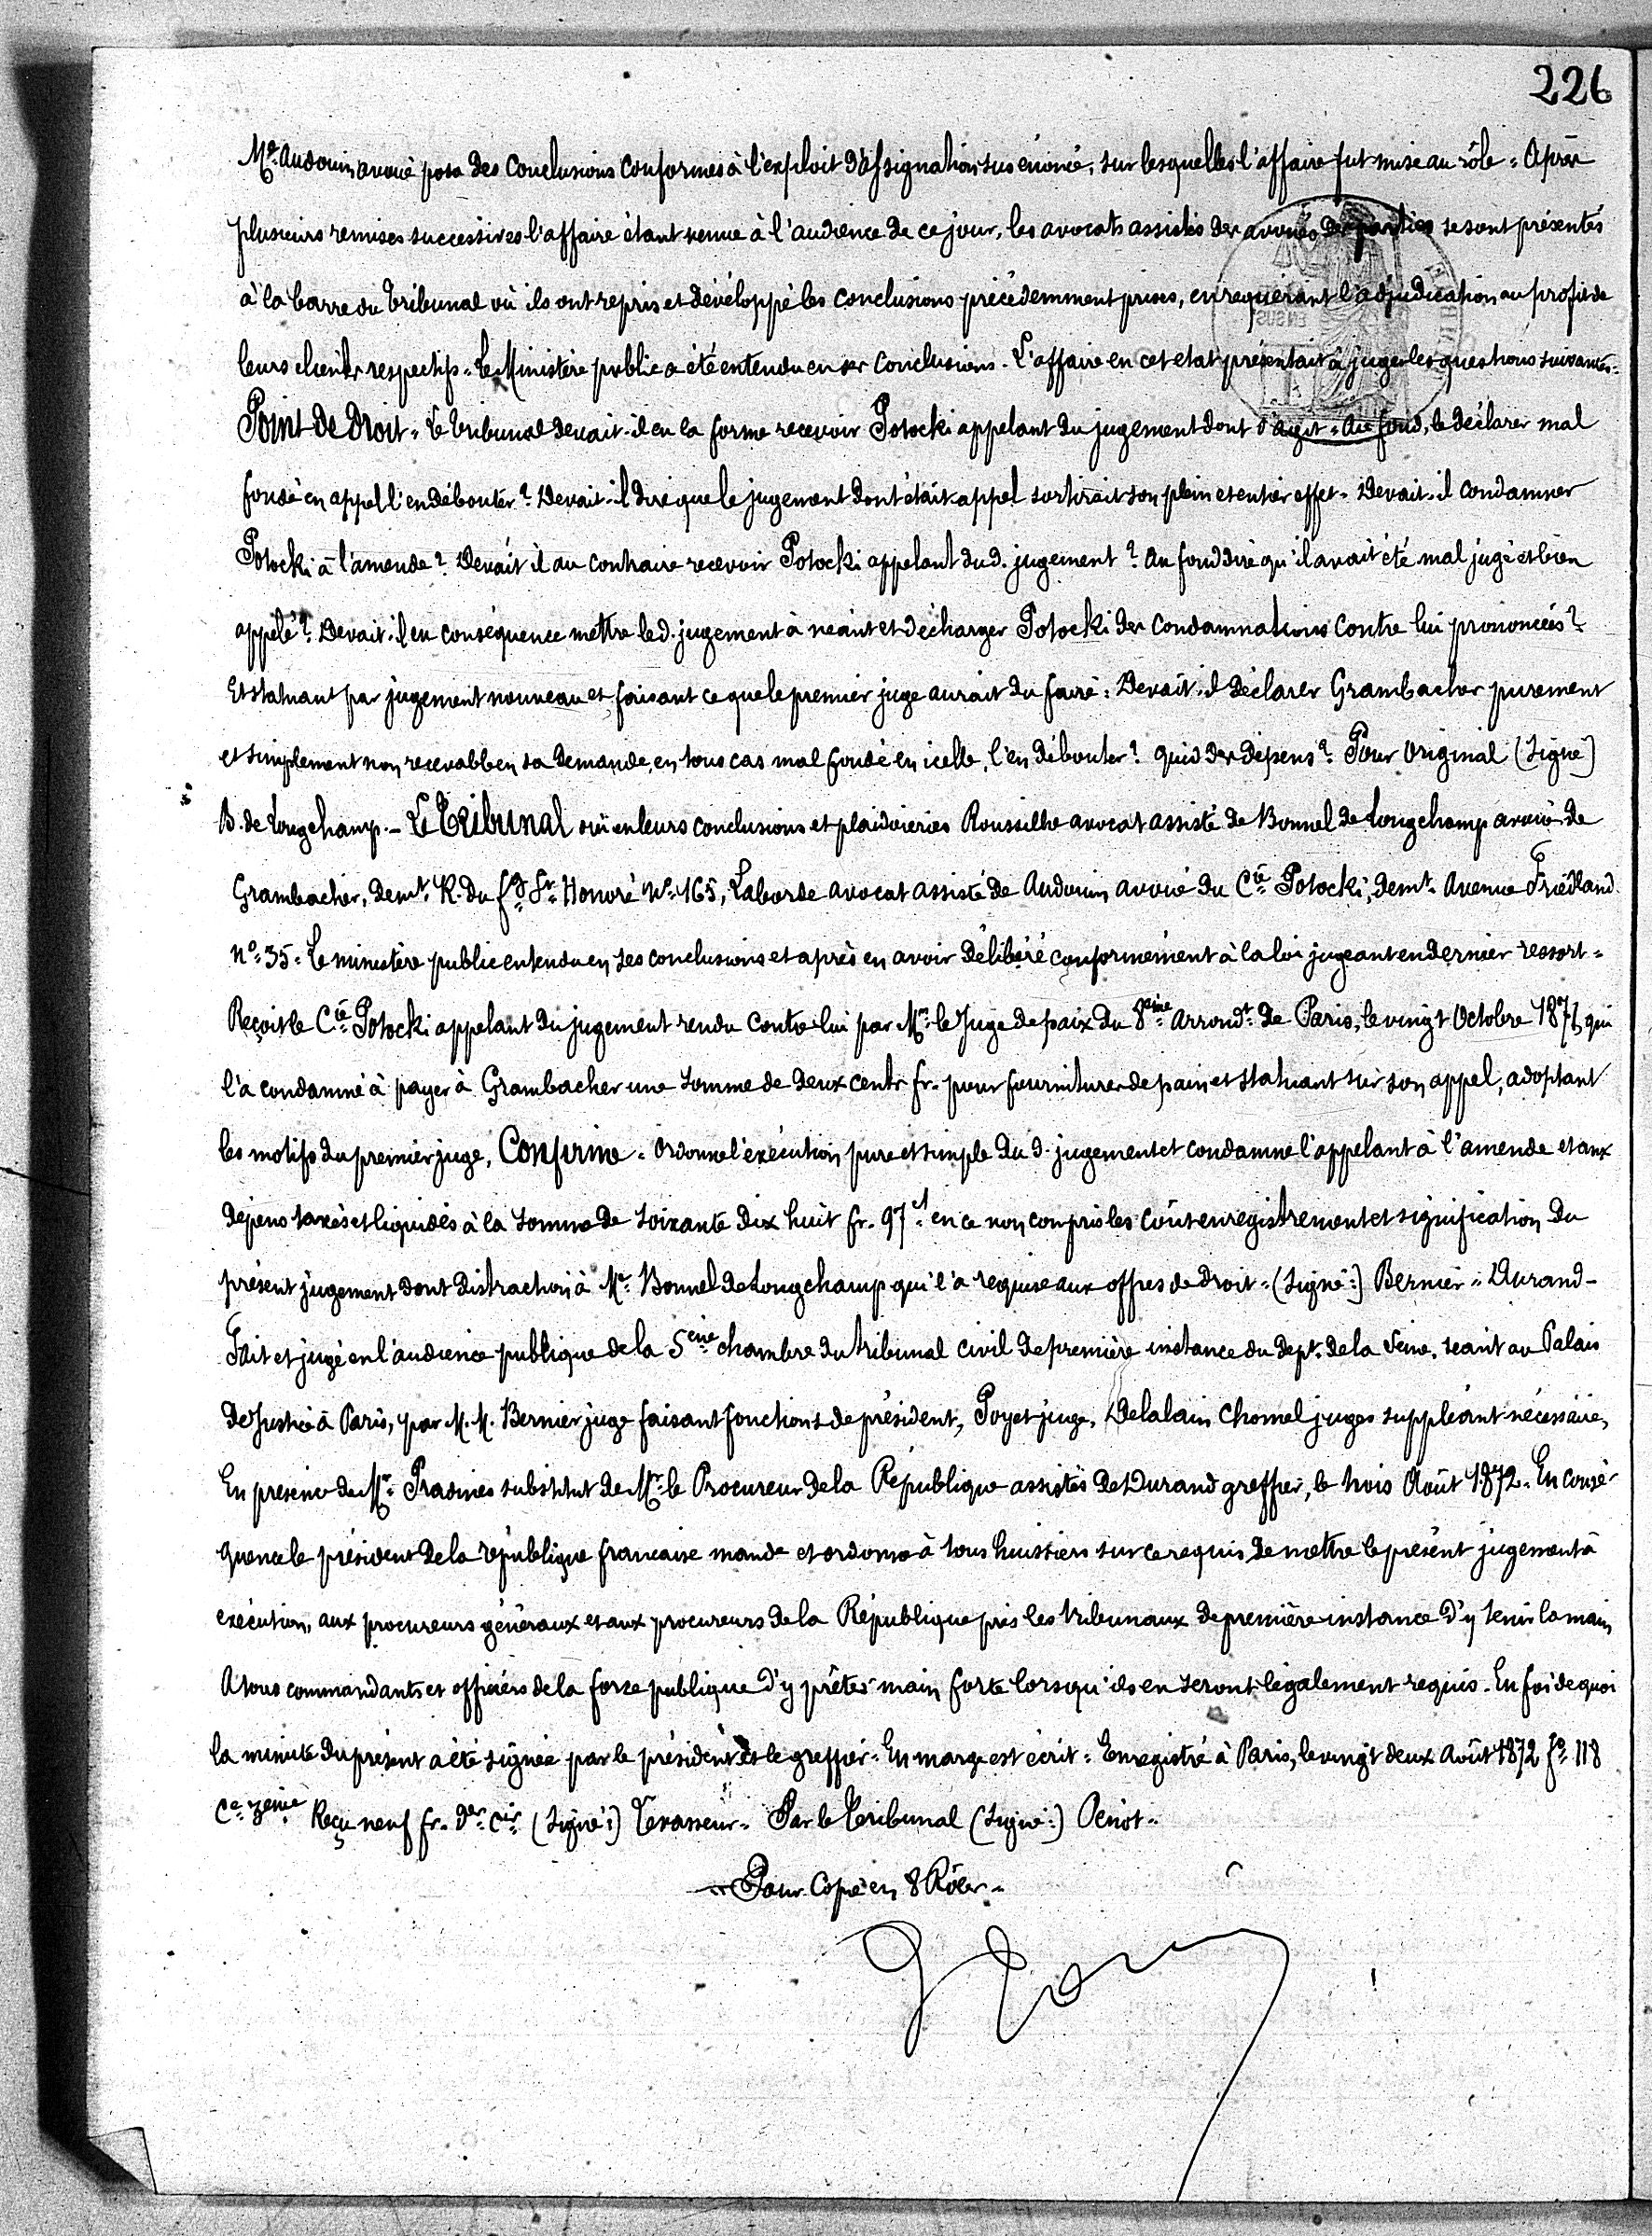 226
Me. Audouin avoué posa des conclusions conformes à l'exploit d'assignation sus énoncé, sur lesquelles l'affaire fut mise au rôle = Après
plusieurs remises successives l'affaire étant venue à l'audience de ce jour, les avocats assistés des avoués des parties se sont présentés
à la barre du Tribunal où ils ont repris et développé les conclusions précédemment prises, en requérant l'adjudication au profit de
leurs clients respectifs = Le Ministère public a été entendu en ses conclusions. L'affaire en cet etat présentait à juger les questions suivantes =
Point de Droit = Le Tribunal devait-il en la forme recevoir Potocki appelant du jugement dont s'agit = Au fond, le déclarer mal
fondé en appel l'en débouter? Devait-il dire que le jugement dont était appel sortirait son plein et entier effet = Devait-il condamner
Potocki à l'amende? Devait il au contraire recevoir Potocki appelant du d. jugement? Au fond dire qu'il avait été mal jugé et bien
appelé? Devait-il en conséquence mettre led. jugement à néant et décharger Potocki des condamnations contre lui prononcées?
Et statuant par jugement nouveau et faisant ce que le premier juge aurait du faire = Devait-il déclarer Grambacher purement
et simplement non recevable en sa demande, en tous cas mal fondé en icelle, l'en débouter? Quid des dépens? Pour Original (Signé)
B. de Longchamp. — Le Tribunal ouï en leurs conclusions et plaidoieries Roussilhe avocat assisté de Bonnel de Longchamp avoué de
Grambacher, demt. R. du fg St. Honoré No. 165, Laborde avocat assisté de Audouin avoué du Cte Potocki, demt. Avenue Friedland
No. 35 = Le ministère public entendu en ses conclusions et après en avoir délibéré conformément à la loi jugeant en dernier ressort =
Reçoit le Cte Potocki appelant du jugement rendu contre lui par Mr. le Juge de paix du 8eme arrondt. de Paris, le vingt Octobre 1871, qui
l'a condamné à payer à Grambacher une somme de deux cents fr. pour fournitures de pain et statuant sur son appel, adoptant
les motifs du premier juge, Confirme = Ordonne l'exécution pure et simple du d. jugement et condamne l'appelant à l'amende et aux
dépens taxés et liquidés à la somme de soixante dix huit fr. 97 ct. en ce non compris les coût enregistrement et signification du
présent jugement dont distraction à Me. Bonnel de Longchamp qui l'a requise aux offres de droit = (Signé:) Bernier = Durand –
Fait et jugé en l'audience publique de la 5eme chambre du tribunal civil de première instance du dept. de la Seine, seant au Palais
de Justice à Paris, par M.M. Bernier juge faisant fonctions de président, Poyet juge, Delalain Chomel juges suppléant nécessaire,
En presence de Mr. Pradines substitut de Mr. le Procureur de la République assistés de Durand greffier, le trois Août 1872. En consé-
quence le président de la république francaise mande et ordonne à tous huissiers sur ce requis de mettre le présent jugement à
exécution, aux procureurs généraux et aux procureurs de la République près les tribunaux de première instance d'y tenir la main
A tous commandants et officiers de la force publique d'y prêter main forte lorsqu'ils en seront légalement requis. En foi de quoi
la minute du présent a été signée par le président et le greffier = En marge est écrit = Enregistré à Paris, le vingt deux Août 1872 fo. 118
Ce. 3eme Reçu neuf fr. (Signé:) Levasseur = Par le Tribunal (Signé:) Penot =
= Pour Copie en 8 Rôles =